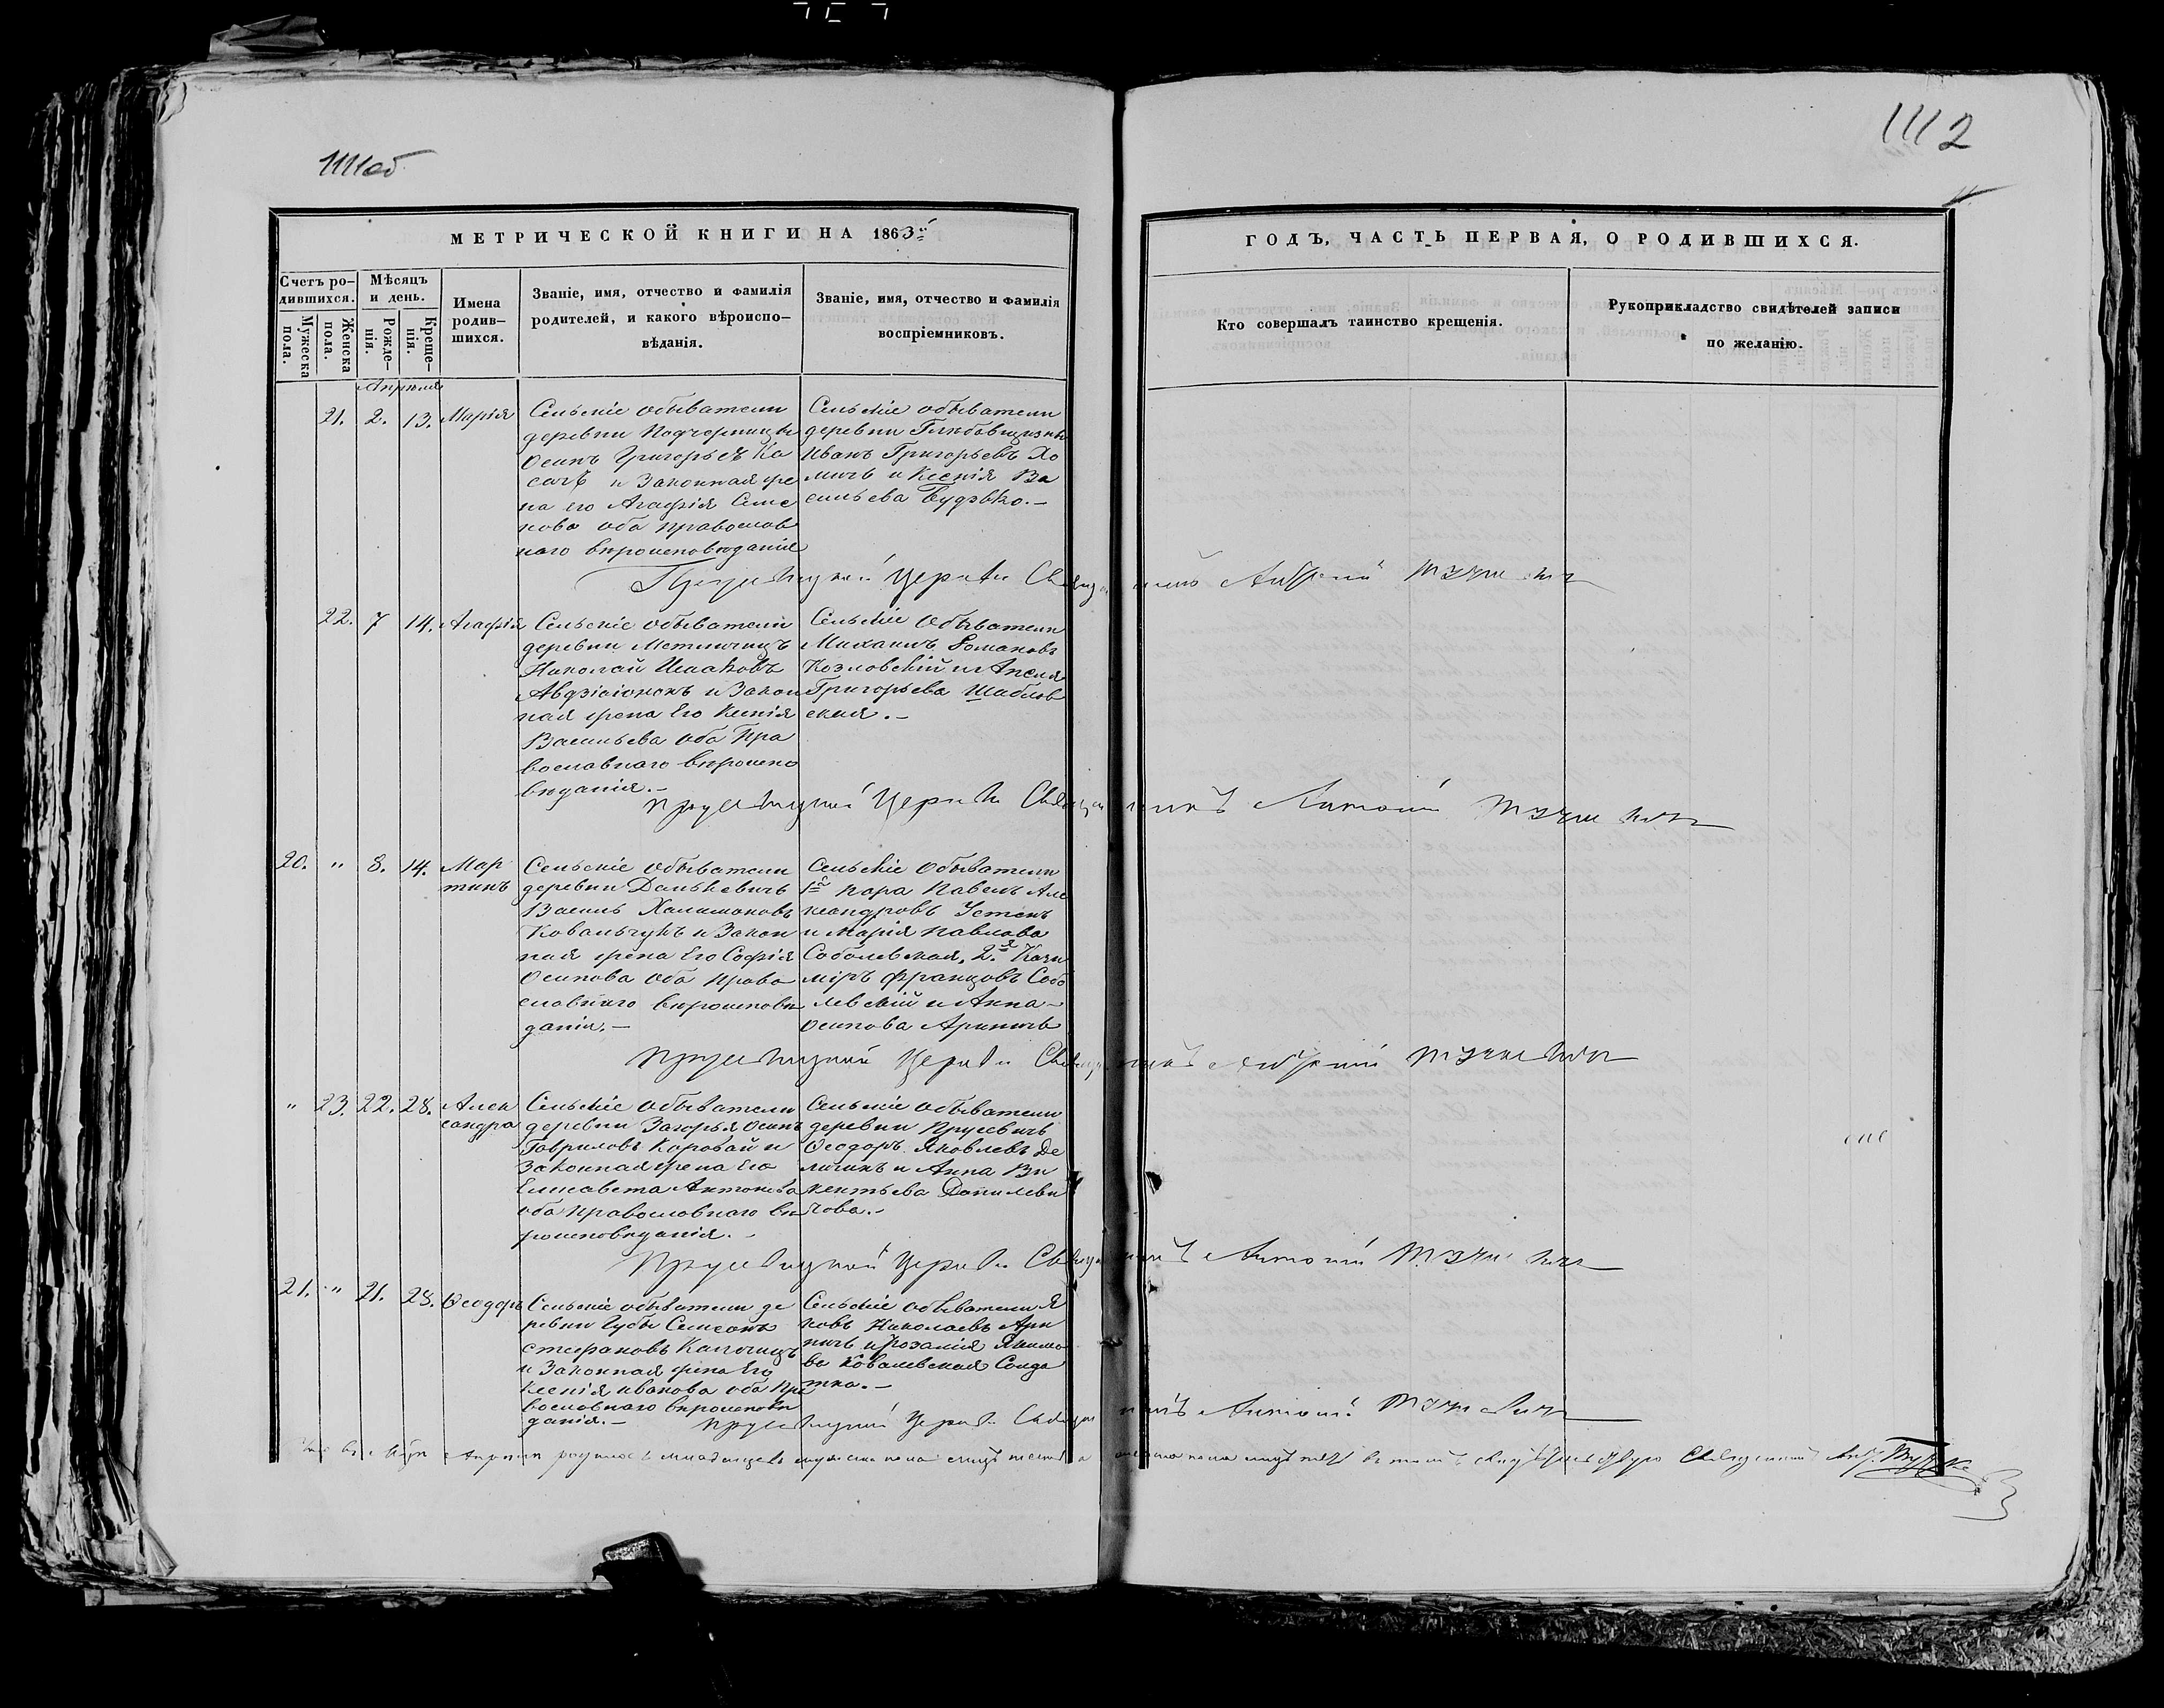 1111об
1112
МЕТРИЧЕСКОЙ КНИГИ НА 1863й
ГОДЪ, ЧАСТЬ ПЕРВАЯ, О РОДИВШИХСЯ.
Счетъ ро-
дившихся.
Мужеска
пола.
Женска
пола.
Мѣсяцъ
и день.
Рожде-
нія.
Креще-
нія.
Имена
родив-
шихся.
Званіе, имя, отчество и фамилія
родителей, и какого вѣроиспо-
вѣданія.
Званіе, имя, отчество и фамилія
воспріемниковъ.
Кто совершалъ таинство крещенія.
Рукоприкладство свидѣтелей записи
по желанію.
Апрѣля
21. 2. 13. Марія
Сельскіе обыватели
деревни
Осипъ Григорьевъ Ка
сачъ и Законная же
на его Агафія Семе
нова оба православ
наго вѣроисповѣданія
Сельскіе обыватели
деревни
Иванъ Григорьевъ Хо
мичъ и Ксенія Ва
сильева Будько.-
Церкви Священникъ
22. 7 14. Агафія
Сельскіе обыватели
деревни
Николай Исаковъ
и Закон
ная жена Его Ксенія
Васильева оба Пра
вославнаго вѣроиспо
вѣданія.-
Сельскіе Обыватели
Михаилъ Романовъ
Козловскій и
Григорьева Шаблов
ская.-
Церкви Священникъ Антоній
20. " 8. 14. Мар
тинъ
Сельскіе обыватели
деревни Данькевичъ
Василь
Ковальчукъ и Закон
ная жена Его Софія
Осипова оба Право
славнаго вѣроисповѣ
данія.-
Сельскіе Обыватели
1я пара Павелъ Але
ксандровъ
и Марія Павлова
Соболевская, 2.я Кази
міръ Францовъ Собо
левскій и Анна-
Осипова Ариничъ
Церкви Священникъ
" 23. 22. 28. Алек
сандра
Сельскіе обыватели
деревни Загорья Осипъ
Гавриловъ Коробай и
Законная жена Его
Елисавета Антонова
оба Православнаго вѣ
роисповѣданія.-
Сельскіе обыватели
деревни Прусевичъ
Ѳеодоръ Яковлевъ
и Анна Ви
кентьева Данилеви
чова.-
Церкви Священникъ Антоній
21. " 21. 28. Ѳеодоръ
Сельскіе обыватели де
ревни Губы Семеонъ
Стефановъ
и Законная жена Его
Ксенія Иванова оба Пра
вославнаго вѣроисповѣ
данія.-
Сельскіе обыватели Я
ковъ Николаевъ Ари
ничъ и Розалія
ва Ковалевская Солда
тка.-
Церкви Священникъ Антоній